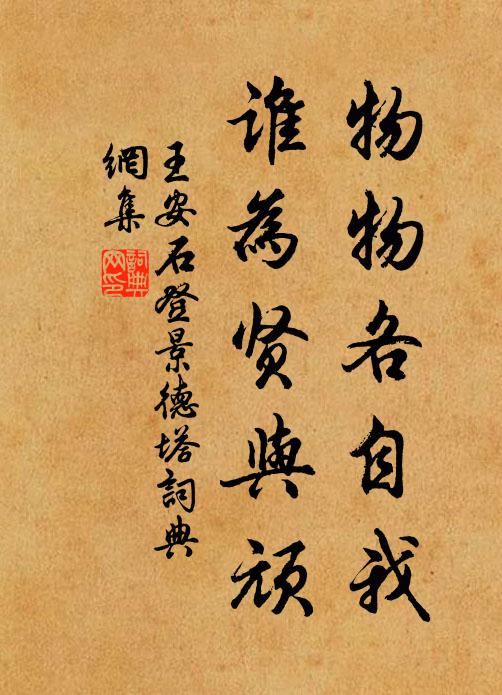 物物各自我
谁為贤與顽
王安石登景德塔詞典
網集
詞典
网印